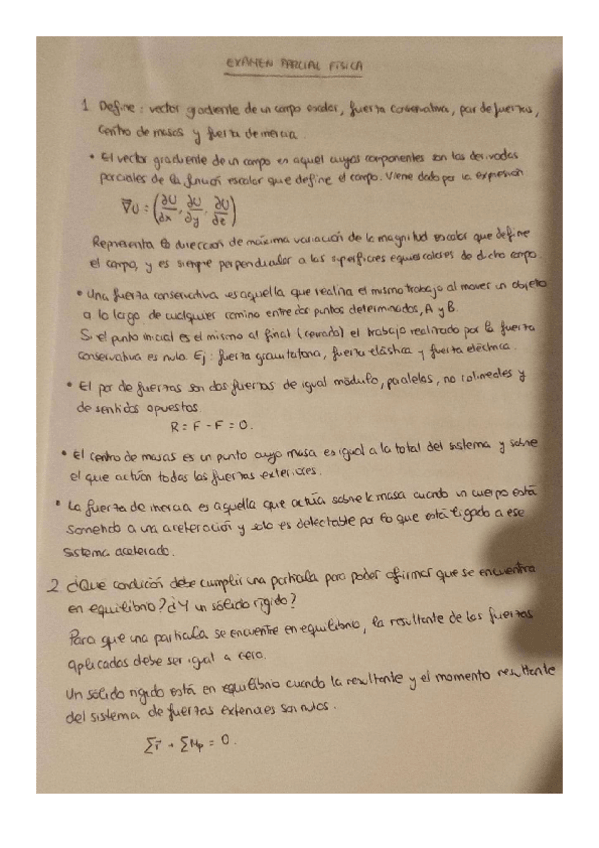 EXAMEN PARCIAL FISICA
1 Define: vector gradiente de un campo escalar, fuerza conservativa, par de fuerzas,
centro de masas y fuerza de inercia.
• El vector gradiente de un campo es aquel cuyas componentes son las derivadas
parciales de la función escalar que define el campo. Viene dado por la expresión
∇U = (∂U/∂x, ∂U/∂y, ∂U/∂z)
Representa la dirección de máxima variación de la magnitud escalar que define
el campo, y es siempre perpendicular a las superficies equiescalares de dicho campo.
• Una fuerza conservativa es aquella que realiza el mismo trabajo al mover un objeto
a lo largo de cualquier camino entre dos puntos determinados, A y B.
Si el punto inicial es el mismo al final (cerrado) el trabajo realizado por la fuerza
conservativa es nula. Ej: fuerza gravitatoria, fuerza elástica y fuerza eléctrica.
• El par de fuerzas son dos fuerzas de igual módulo, paralelas, no colineales y
de sentidos opuestos.
R = F - F = 0.
• El centro de masas es un punto cuya masa es igual a la total del sistema y sobre
el que actúan todas las fuerzas exteriores.
• La fuerza de inercia es aquella que actúa sobre la masa cuando un cuerpo está
sometido a una aceleración y solo es detectable por lo que está ligado a ese
sistema acelerado.
2 ¿Que condición debe cumplir una partícula para poder afirmar que se encuentra
en equilibrio? ¿Y un sólido rígido?
Para que una partícula se encuentre en equilibrio, la resultante de las fuerzas
aplicadas debe ser igual a cero.
Un sólido rígido está en equilibrio cuando la resultante y el momento resultante
del sistema de fuerzas externas son nulos.
= 0.